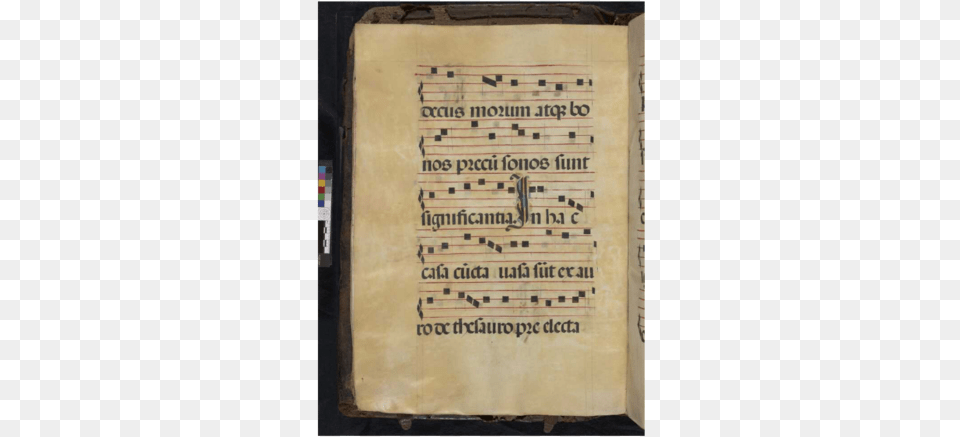 decus morum atqꝫ bo
nos precū ſonos ſunt
ſignificantia. In ha c
caſa cūcta uaſa ſūt ex au
ro de theſauro pre electa